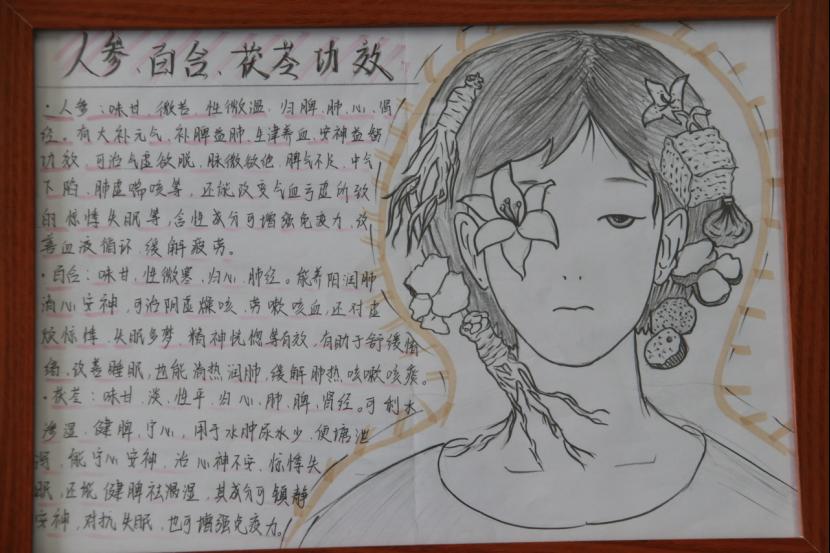 人参、百合、茯苓功效
·人参：味甘、微苦、性微温、归脾、肺、心、肾
经。有大补元气、补脾益肺、生津养血、安神益智
功效，可治气虚欲脱、脉微欲绝、脾气不足、中气
下陷、肺虚喘咳等，还能改变气血亏虚所致
的惊悸失眠等，含性成分可增强免疫力、改
善血液循环、缓解疲劳。
·百合：味甘、性微寒、归心、肺经。能养阴润肺
清心安神，可治阴虚燥咳、劳嗽咳血，还对虚
烦惊悸、失眠多梦、精神恍惚等有效，有助于舒缓情
绪、改善睡眠，也能清热润肺，缓解肺热咳嗽咳痰。
·茯苓：味甘、淡、性平、归心、肺、脾、肾经。可利水
渗湿、健脾、宁心，用于水肿尿水少、便溏泄
泻，能宁心安神，治心神不安、惊悸失
眠，还能健脾祛湿，其成分可镇静
安神，对抗失眠，也可增强免疫力。